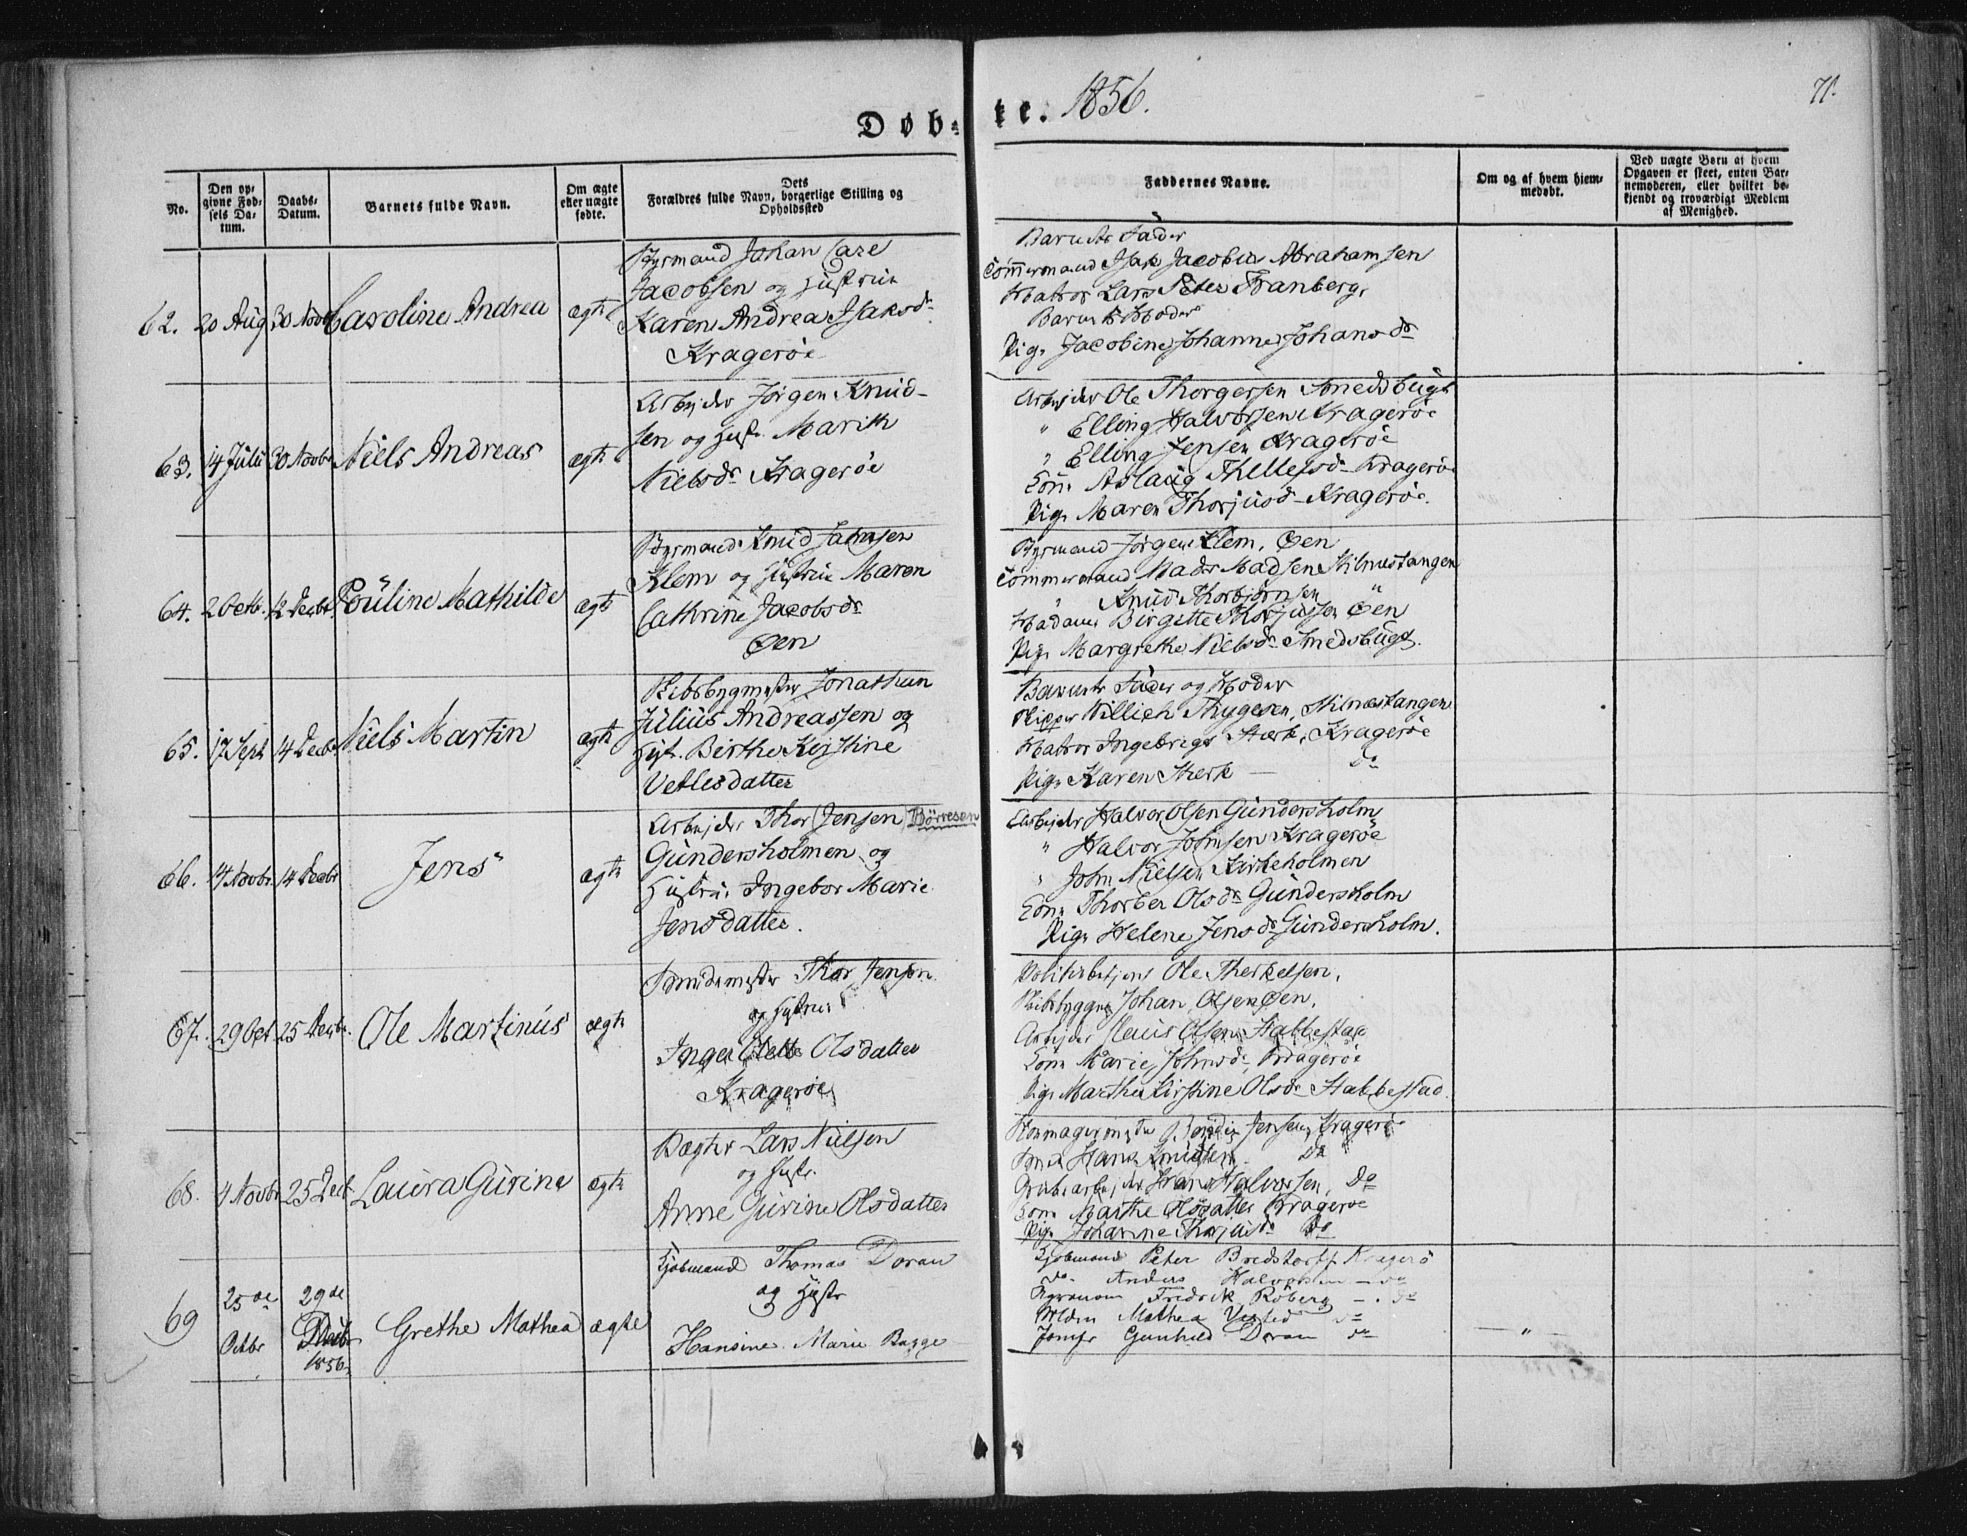 Døb-te. 1856.
71.
No.
Den opgivne Fødsels Datum.
Daabs-Datum.
Barnets fulde Navn.
Om ægte eller uægte fødte.
Forældres fulde Navn, Dets borgerlige Stilling og Opholdssted
Faddernes Navne.
Om og af hvem hjemmedøbt.
Ved uægte Børn af hvem Opgaven er skeet, enten Barnemoderen, eller hvilket bekjendt og troværdigt Medlem af Menighed.
62. 20 Aug 30 Novbr Caroline Andrea ægte
Styrmand Johan Care
Jacobsen og Hustrue
Karen Andrea Isaksdr
Kragerøe
Barnets Fader
Tømmermand Isak Jacobsen Abrahamsen
Matros Lars Peter Franberg,
Barnets Moder
Pige Jacobine Johanne Johansdr
63. 14 Juli 30 Novbr Niels Andreas ægte
Arbejder Jørgen Knud-
sen og Hustr. Marith
Nielsdr Kragerøe
Arbejder Ole Thorgersen Smedsbugt
" Elling Halvorsen Kragerøe
" Elling Jensen Kragerøe
Kone Aslaug Thellefsdr Kragerøe
Pige Maren Thorjusdr Kragerøe.
64. 2 Octbr. 12 Decbr. Pouline Mathilde ægte
Styrmand Knud Jahnsen
Klem og Hustrue Maren
Cathrine Jacobsdr
Øen
Styrmand Jørgen Klem, Øen
Tømmermand Mads Madsen Stilnestangen
" Knud Thorbjørnsen "
Madame Birgitte Thorjussen Øen
Pige Margrethe Nielsdr Smedsbugt.
65. 17 Sept 14 Decbr Niels Martin ægte
Skibsbygmester Jonathan
Julius Andreassen og
Hust. Birthe Kirstine
Vetlesdatter
Barnets Fader og Moder
Skipper Willich Thygesen, Stilnestangen
Matros Ingebrigt Stærk, Kragerøe
Pige Karen Sterk — Do
66. 14 Novbr. 14 Decbr Jens ægte
Arbejder Thor (Jensen) Børresen
Gundersholmen og
Hustrue Ingebor Marie
Jensdatter.
Arbejder Halvor Olsen Gundersholm
" Halvor Johnsen Kragerøe
" John Nielsen Kirkeholmen
Kone Thorber Olsdr Gundersholm
Pige Helene Jensdr Gundersholm.
67. 29 Oct 25 Decbr. Ole Martinus ægte
Smedemester Thor Jensen
og Hustrue
Inger Olette Olsdatter
Kragerøe
Politibetjent Ole Therkelsen.
Skibsbygger Johan Olsen Øen.
Arbejder Claus Olsen Stabbestad
Kone Marie Johnsdr Kragerøe
Pige Marthe Kirstine Olsdr Stabbestad.
68. 4 Novbr 25 Decbr Laura Gurine ægte
Vægter Lars Nielsen
og Hustr.
Anne Gurine Olsdatter
Jensen Kragerøe
Hans Knudsen Do
Hans Halvorsen, Do
Kone Marthe Olsdatter Kragerøe
Pige Johanne Thorjusdr Do
69 25de Octbr 29de Decbr 1856. Grethe Mathea ægte
Kjøbmand Thomas Doran
og Hustr
Hansine Marie Bagge
Kjøbmand Peter Bredstorff Kragerø
do. Anders Halvorsen — do
Agronom Fredrik Röberg — . do
Mathea Vested do
Jomfr Gunhild Doran do
— " —